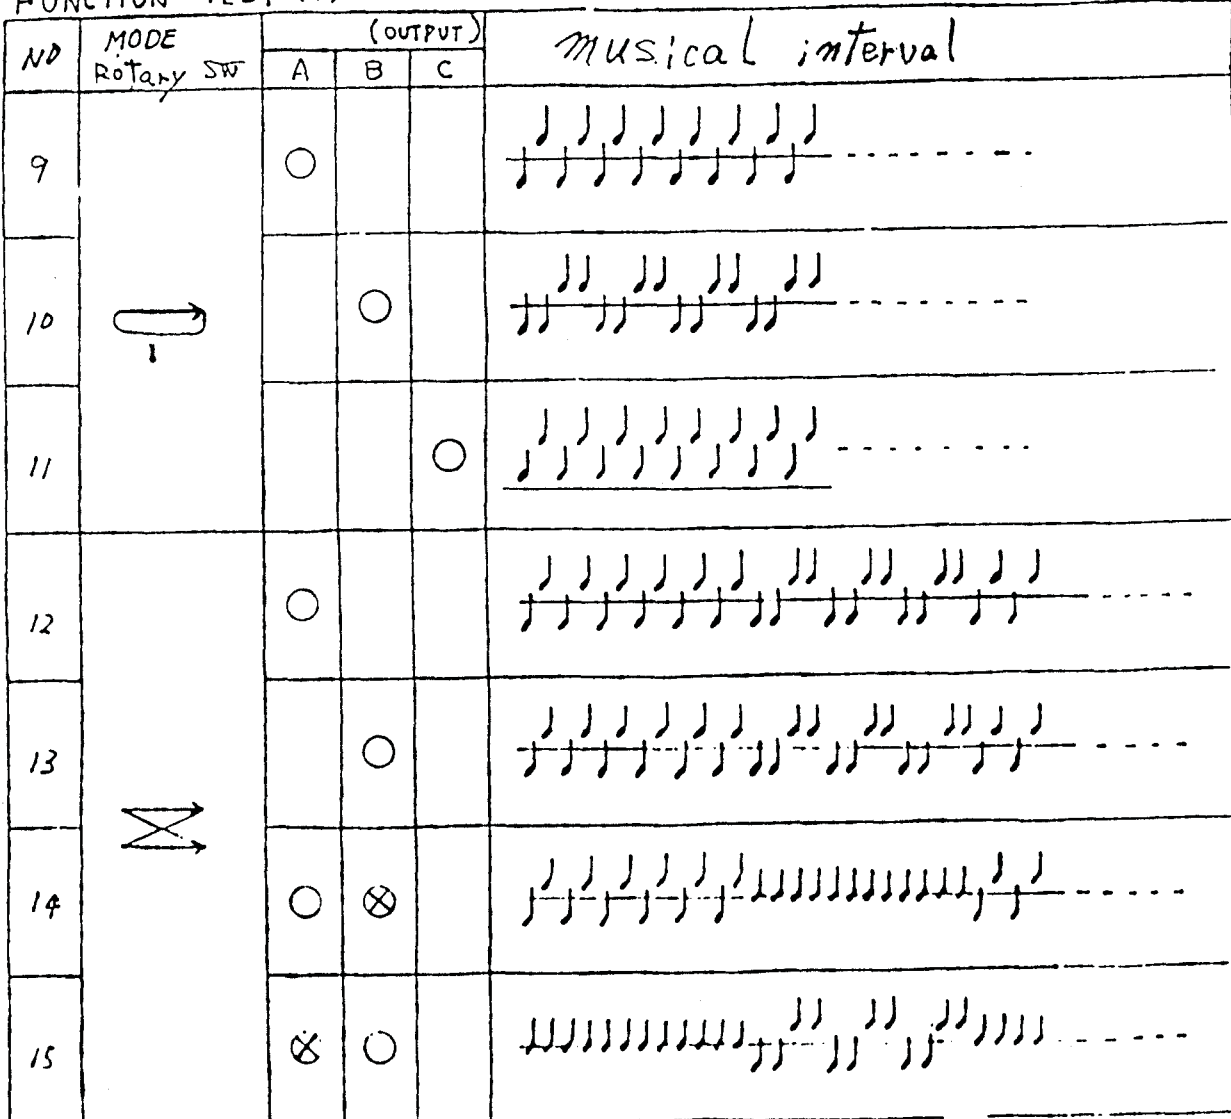 FUNCTION TEST
NO MODE Rotary SW (OUTPUT) A B C musical interval
9
10
1
11
12
13
14
15